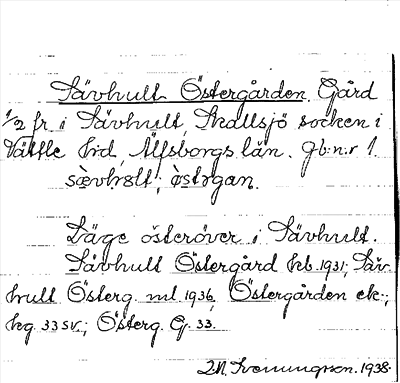 Sävhult Östergården. Gård
1/2 fr. i Sävhult, Skallsjö socken i
Vättle hrd, Älfsborgs län. Jb:n:r 1.
sævhølt, östərgan.
Läge österöver i Sävhult.
Sävhult Östergård hb. 1931; Säv-
hult Österg. ml 1936, Östergården ek.;
hg. 33 sv.; Österg. G. 33.
Svenungson. 1938.